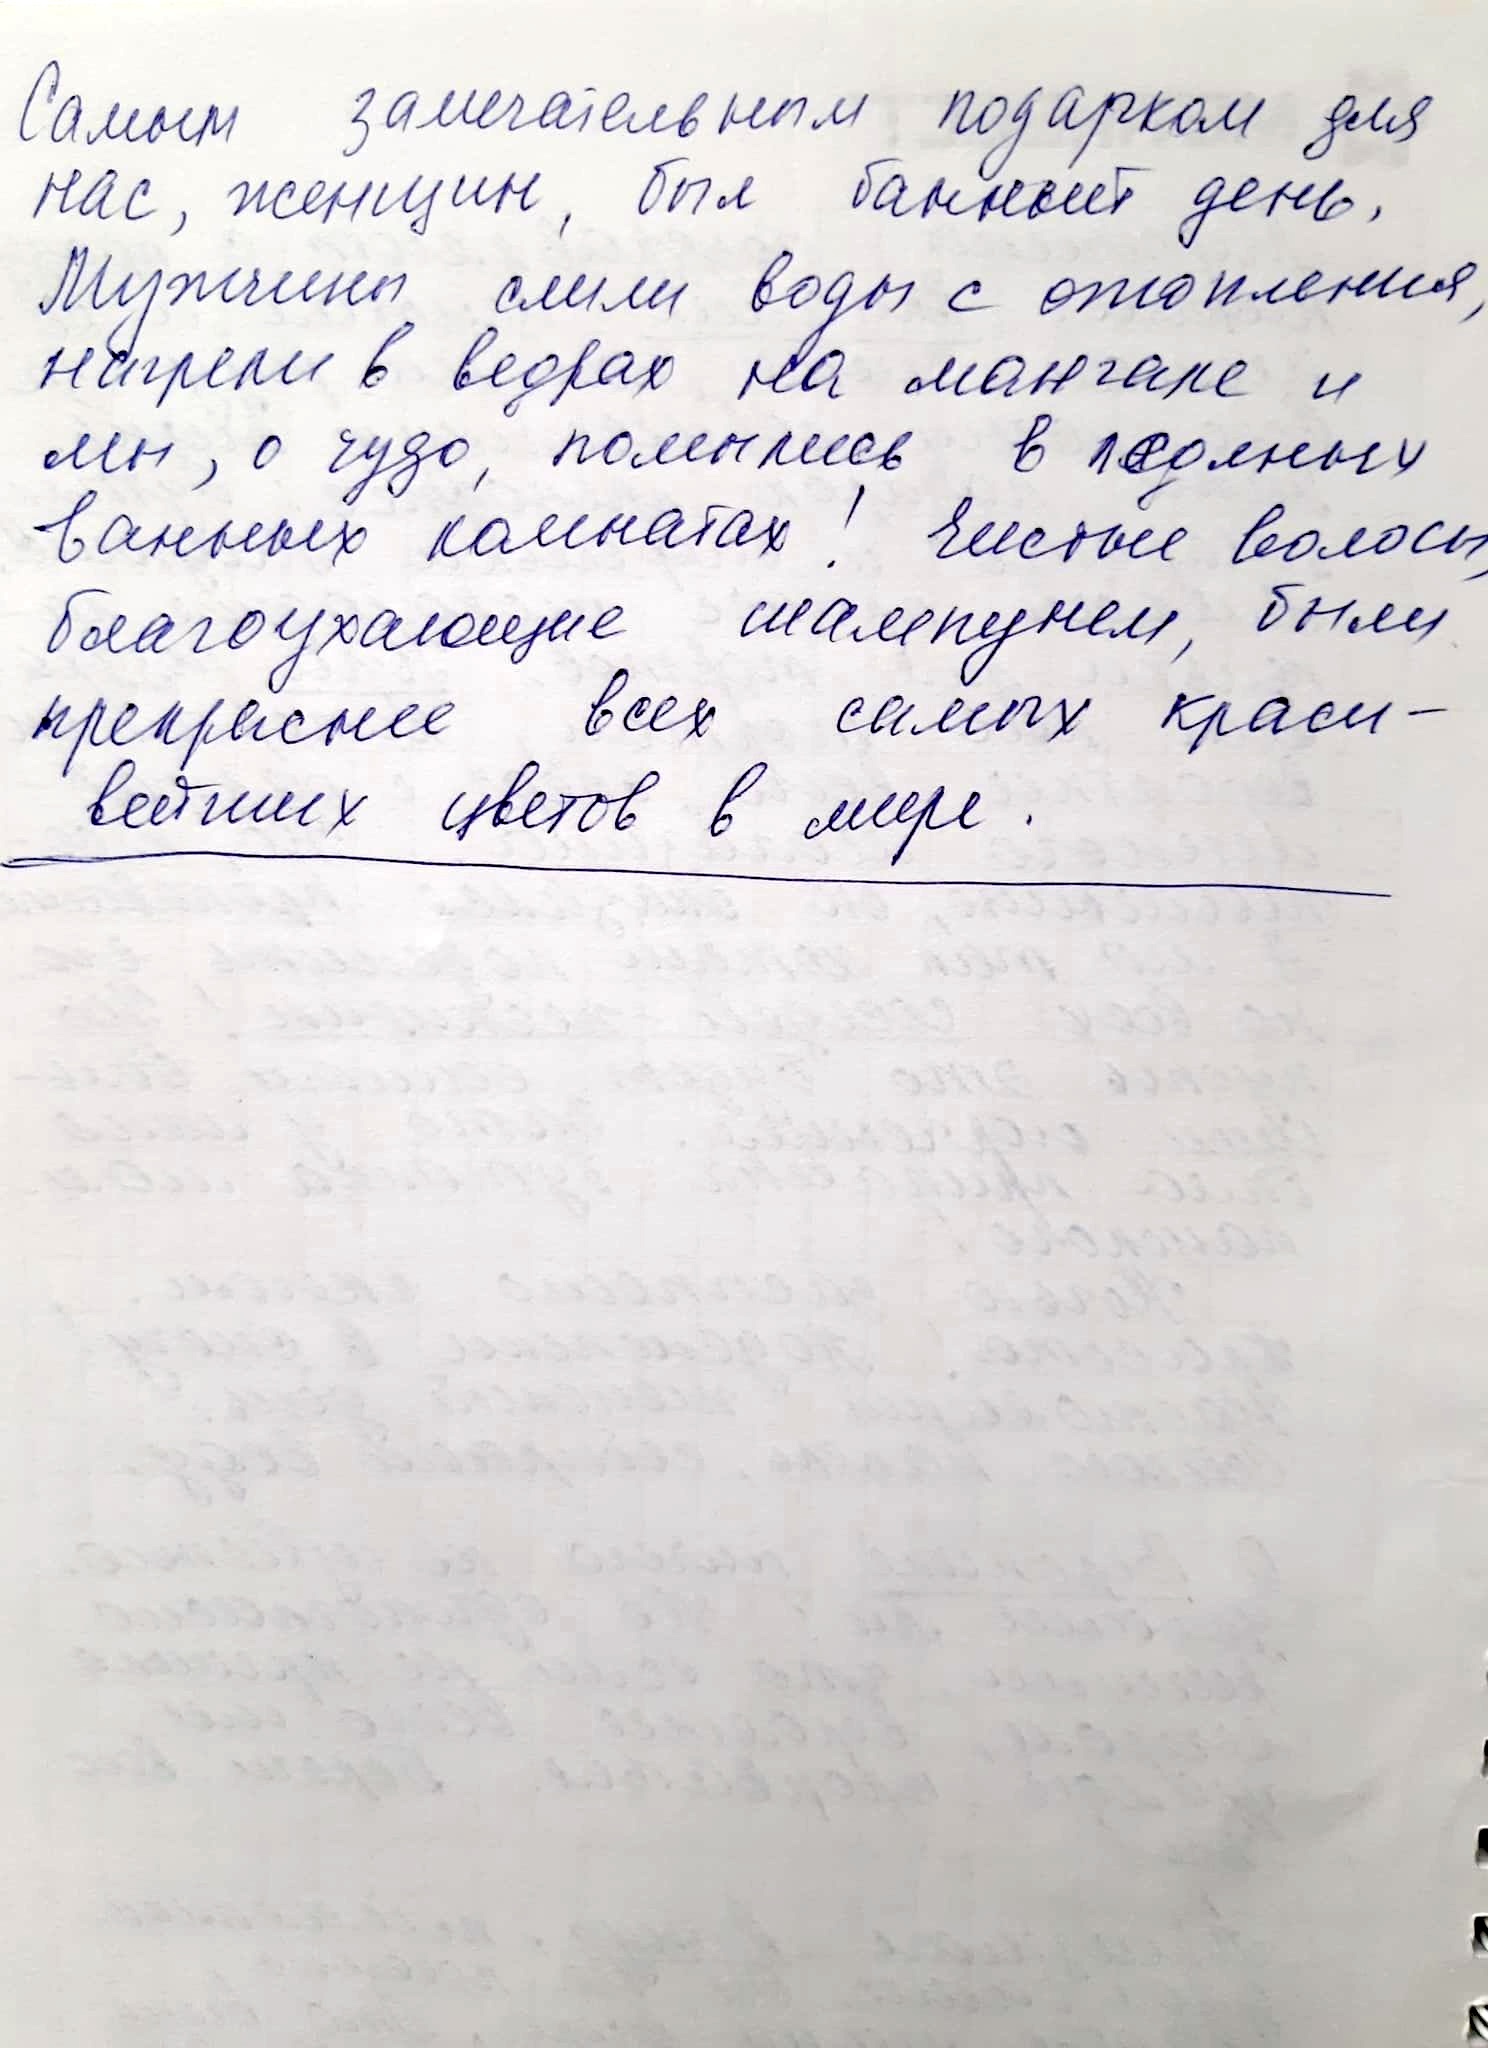 Самым замечательным подарком для
нас, женщин, был банный день.
Мужчины слили воды с отопления,
нагрели в ведрах на мангале и
мы, о чудо, помылись в ледяных
ванных комнатах! Чистые волосы,
благоухающие шампунем, были
прекраснее всех самых краси-
вейших цветов в мире.